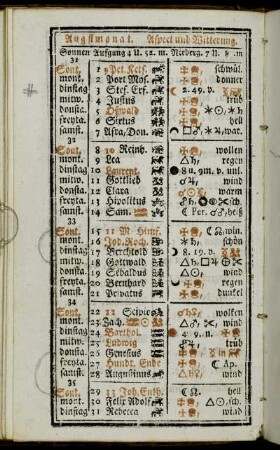 Augstmonat. Aspect und Witterung.
Sonnen Aufgang 4 U. 52. m. Niderg. 7 U. 8 m
31
Sont. 1 9 Pet. Ketf. schwül.
mont. 2 Port. Mos. donner
dinstag 3 Stef. Erf. 2. 49. v.
mitw. 4 Justus trüb
donsta. 5 Oswald
freyta. 6 Sixtus hell
samst. 7 Afra, Don. war.
32
Sont. 8 10 Reinh. wolken
mont. 9 Lea regen
dinstag 10 Laurent. 8 u. 9m. v. unl.
mitw. 11 Gottlieb wind
donsta. 12 Clara warm
freyta. 13 Hipolitus sch.
samst. 14 Sam. Per. heiß
33
Sont. 15 11 M. Himf. win.
mont. 16 Jod. Roch. schön
dinstag 17 Berchtold 8. 19. v.
mitw. 18 Gottwald
donsta. 19 Sebaldus wind
freyta. 20 Bernhard regen
samst. 21 Privatus dunkel
34
Sont. 22 12 Scipio wolken
mont. 23 Zach. wind
dinstag 24 Barthol. 4. 9. n.
mitw. 25 Ludwig trüb
donsta. 26 Genesius in
freyta. 27 Hundt. Ende Ap.
samst. 28 Augustinus wind
35
Sont. 29 13 Joh. Enth. hell
mont. 30 Felix Adolf sch.
dinstag 31 Rebecca wind